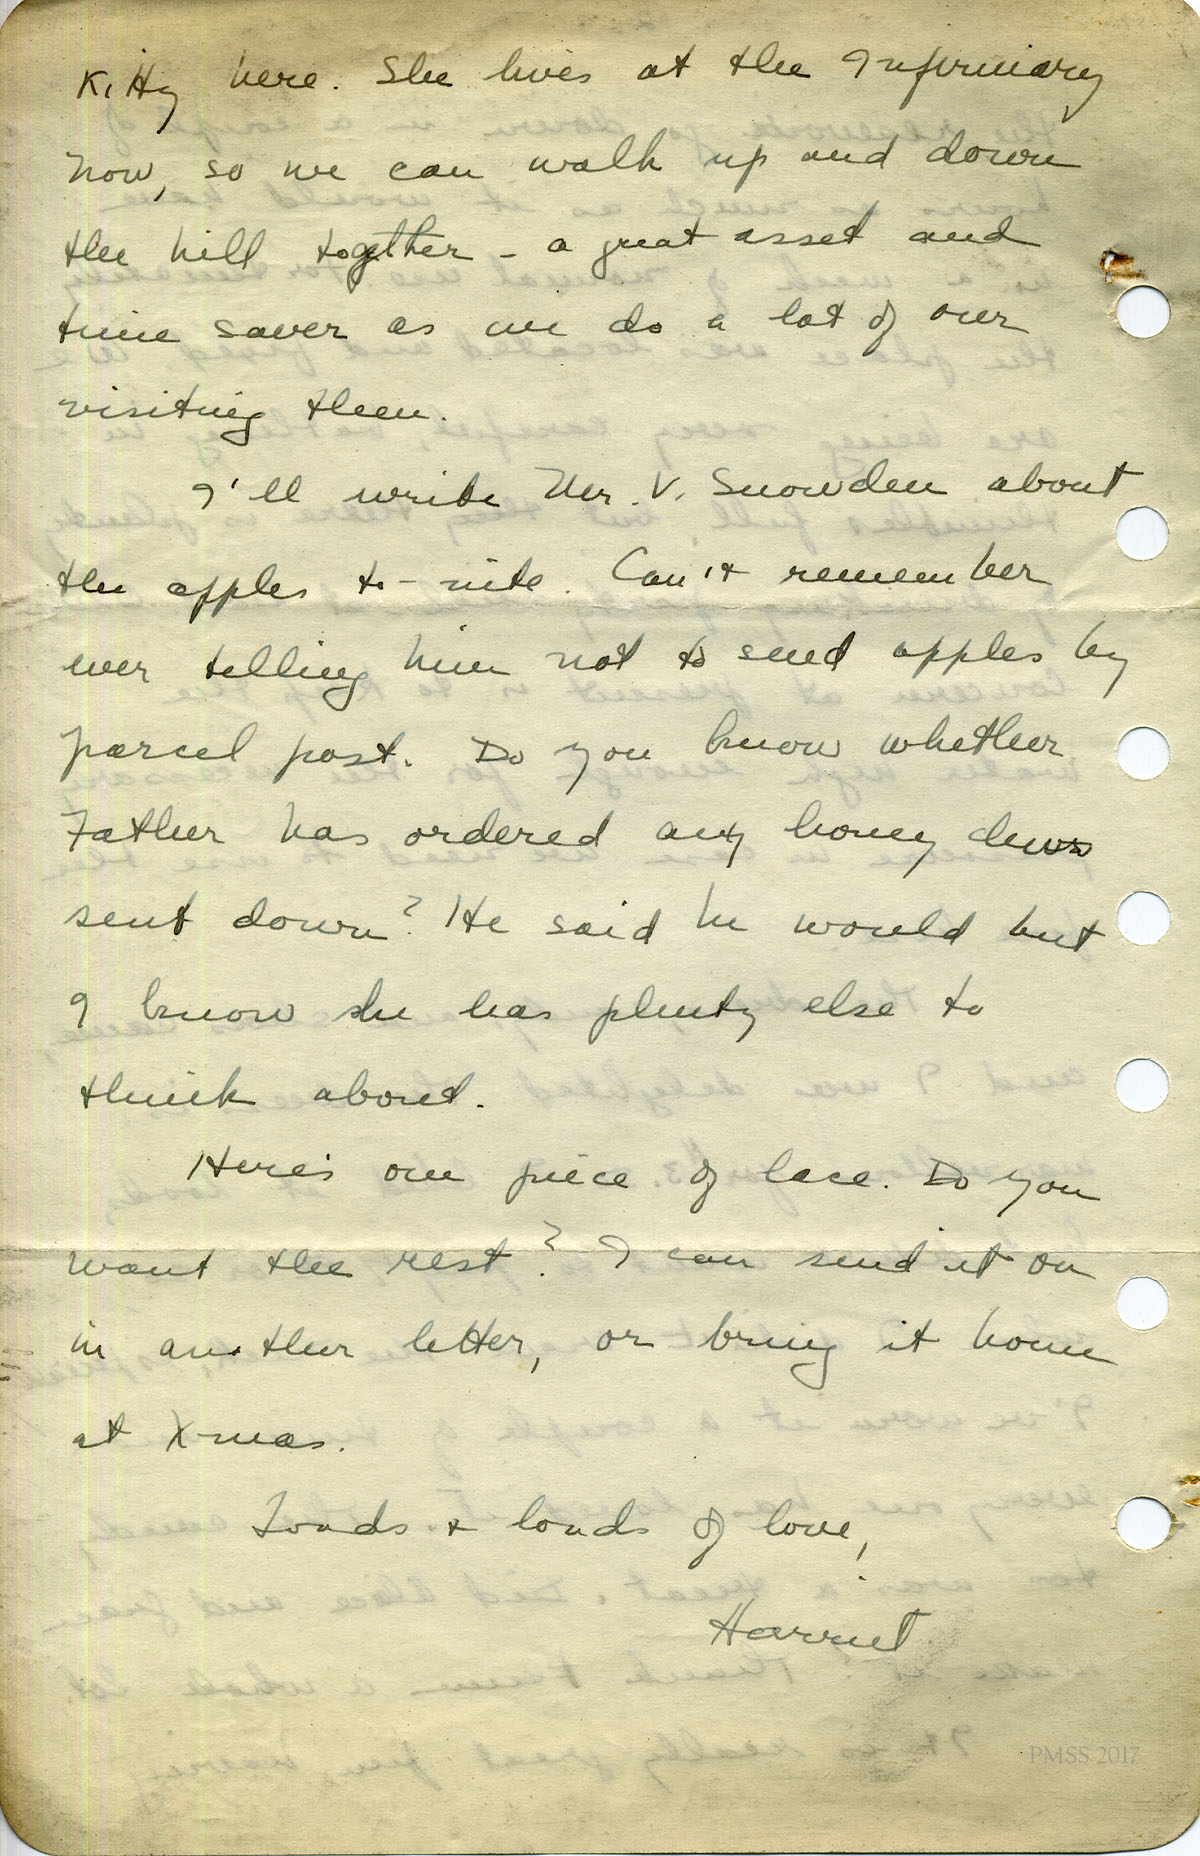 Kitty here. She lives at the Infirmary
now, so we can walk up and down
the hill together - a great asset and
time saver as we do a lot of our
visiting then.
I'll write Mr. V. Snowden about
the apples to-nite. Can't remember
ever telling him not to send apples by
parcel post. Do you know whether
Father has ordered any honey dews
sent down? He said he would but
I know he has plenty else to
think about.
Here's one piece of lace. Do you
want the rest? I can send it on
in another letter, or bring it home
at X-mas.
Loads & loads of love,
Harriet
PMSS 2017